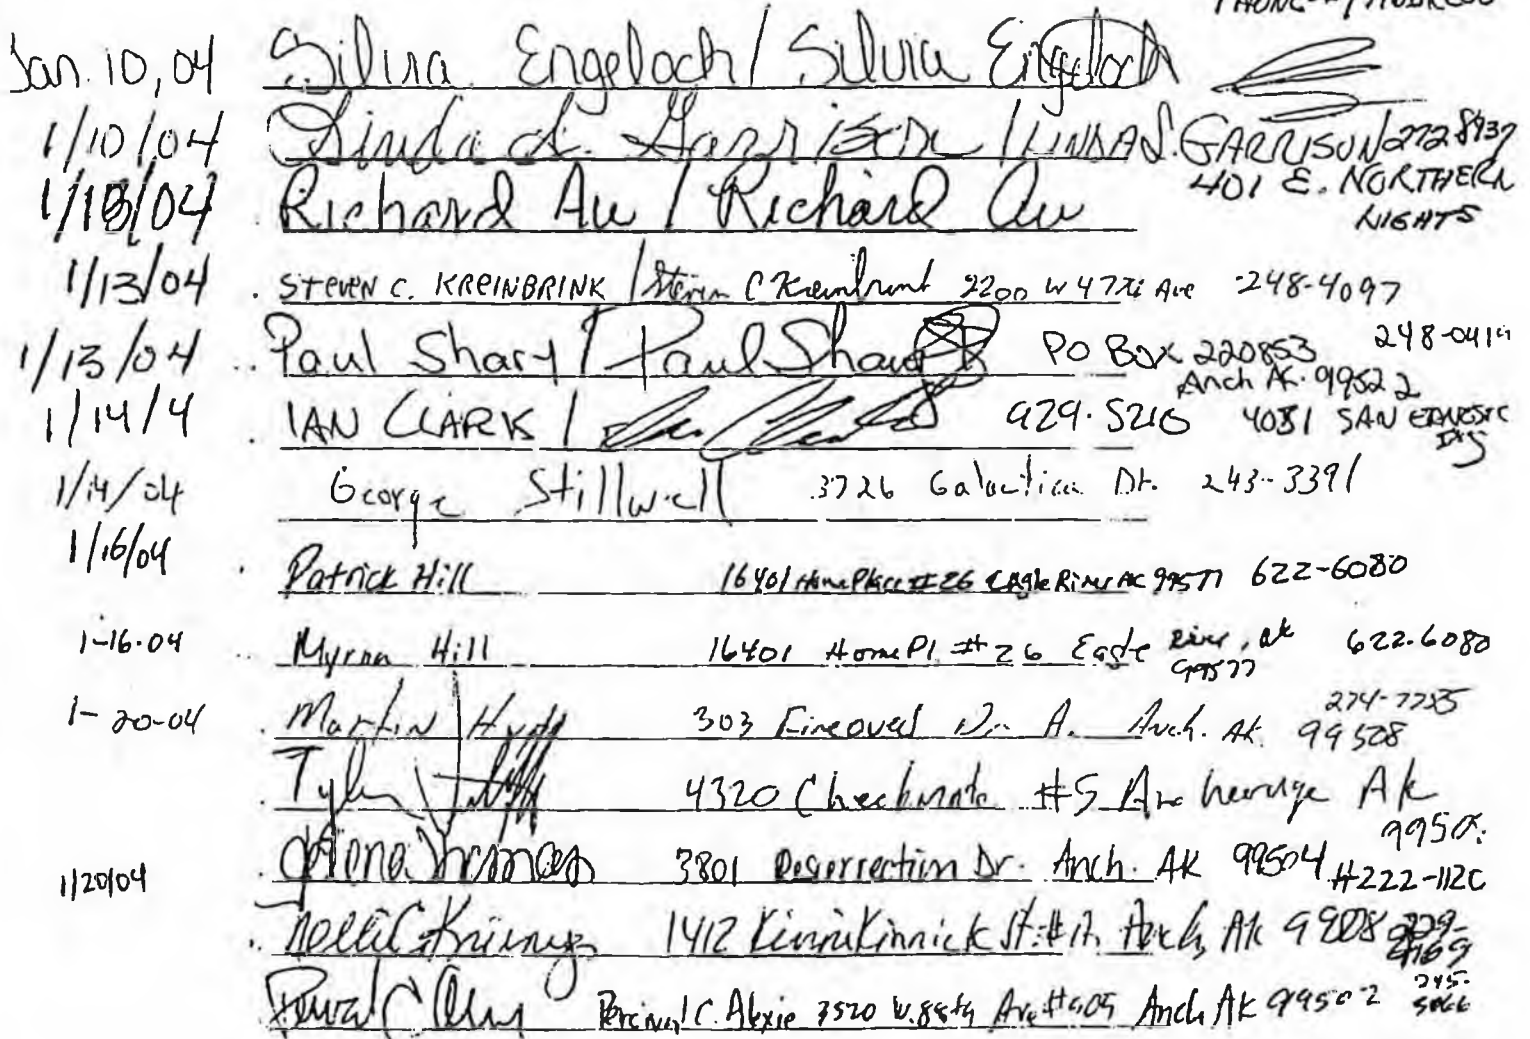 PHONE # / ADDRESS
Jan. 10, 04 Silvia Engeloch / Silvia Engeloch
1/10/04 Linda L. Garrison / LINDA L. GARRISON 272 8937
401 E. NORTHERN
LIGHTS
1/13/04 Richard Au / Richard Au
1/13/04 STEVEN C. KREINBRINK / Steven C Kreinbrink 2200 W 47th Ave 248-4097
1/13/04 Paul Shary / Paul Shary PO Box 220853 248-041
Anch AK. 99522
1/14/4 IAN CLARK / 929-5210 4081 SAN ERNESTO
1/14/04 George Stillwell 3726 Galactica Dr. 243-3391
1/16/04 Patrick Hill 16401 Home Place #26 Eagle River AK 99577 622-6080
1-16-04 Myrna Hill 16401 Home Pl #26 Eagle River, ak 622-6080
99577
1-20-04 Martin 303 Dr. A. Anch. AK. 274-7785
99508
Tyler 4320 Checkmate #5 Anchorage AK
9950
1/20/04 3801 Resurrection Dr. Anch. AK 99504 #222-1120
1412 Kinnikinnick St. # Anch, AK 229-
Percival C. Alexie 3520 W. 88th Ave #
Anch AK 99502 245-